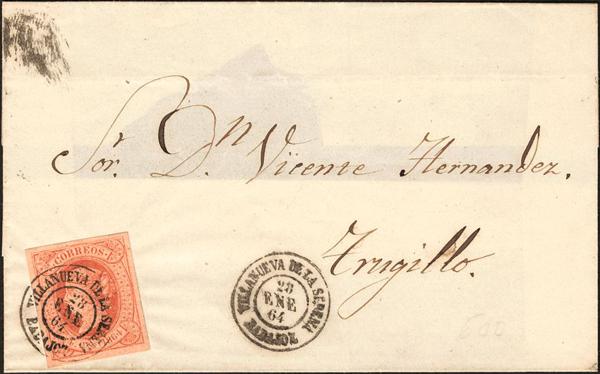 Sor. Dn Vicente Hernandez.
Trugillo.
CORREOS
VILLANUEVA DE LA SERENA
28
ENE
64
BADAJOZ
VILLANUEVA DE LA SERENA
28
ENE
64
BADAJOZ